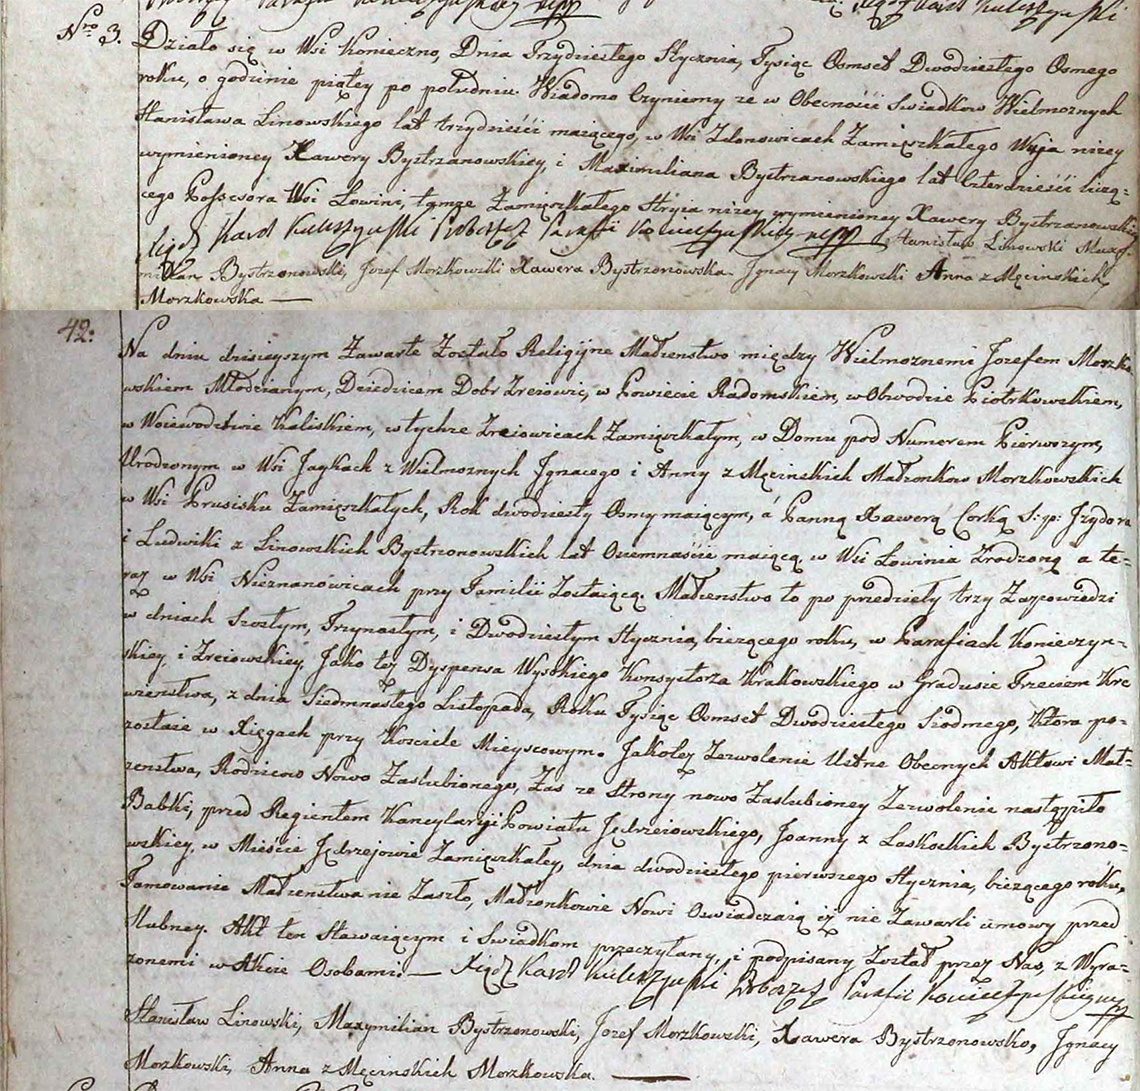 Nro 3. Działo się w Wsi Konieczno, Dnia Trzydziestego Stycznia, Tysiąc Osmset Dwodziestego Osmego
roku, o godzinie piątey po południu. Wiadomo Czyniemy że w Obecności Swiadkow Wielmoznych
Stanisława Linowskiego lat trzydzieści maiącego, w Wsi Zdanowicach Zamięszkałego Wuja niżey
wymienioney Xawery Bystrzanowskiey, i Maximiliana Bystrzanowskiego lat Czterdzieści liczą-
cego Possessora Wsi Łowini, tamże Zamięszkałego Stryia niżey wymienioney Xawery Bystrzanowski
Xiądz Karol Kuleszyński Proboszcz Parafii Stanisław Linowski Maxy-
milian Bystrzonowski, Jozef Morzkowski Xawera Bystrzonowska Jgnacy Morzkowski Anna z Męcinskich
Morzkowska —
42:
Na dniu dzisieyszym Zawarte Zostało Religijne Małżenstwo między Wielmożnemi Jozefem Morzko
wskiem Młodzianym, Dziedzicem Dobr Zreiowic, w Powiecie Radomskiem, w Obwodzie Piotrkowskiem,
w Woiewodztwie Kaliskiem, w tychże Zreiowicach Zamięszkałym, w Domu pod Numerem Pierwszym,
Urodzonym w Wsi Jaykach z Wielmoznych Jgnacego i Anny z Męcinskich Małżonkow Morzkowskich
w Wsi Prusisku Zamięszkałych, Rok dwodziesty Osmy maiącym, á Panną Xawerą Corką S: p: Jzydora
i Ludwiki z Linowskich Bystrzonowskich lat Osiemnaście maiącą w Wsi Łowinia Zrodzoną a te-
raz w Wsi Nieznanowicach przy Familii Zostaiącą. Małżenstwo to po przedziły trzy Zapowiedzi
w dniach Szostym, Trzynastym, i Dwodziestym Stycznia, bieżącego roku, w Parafiach Konieczyn-
skiey, i Zreiowskiey, Jako też Dyspensa Wysokiego Konsystorza Krakowskiego w Gradusie Trzeciem Kre
wieństwa, z dnia Siedmnastego Listopada, Roku Tysiąc Osmset Dwodziestego Siodmego, Ktora po-
zostaie w Xięgach przy Kościele Mieyscowym. Jakotez Zezwolenie Ustne Obecnych Aktowi Mał-
żenstwa, Rodzicow Nowo Zaslubionego, Zas ze Strony nowo Zaslubioney Zezwolenie nastąpiło
Babki, przed Regientem Kancylaryi Powiatu Jędrzeiowskiego, Joanny z Laskockich Bystrzono-
wskiey, w Mieście Jędrzejowie Zamięszkałey, dnia dwodziestego pierwszego Stycznia, bieżącego roku,
Tamowanie Małżenstwa nie Zaszło, Małżonkowie Nowi Oswiadczaią iż nie Zawarli umowy przed
slubney. Akt ten Stawaiącym i Swiadkom przeczytany, i podpisany Został przez Nas, z Wyra-
żonemi w Akcie Osobami. — Xiądz Karol Kuleszyński Proboszcz Parafii
Stanisław Linowski, Maxymilian Bystrzonowski, Jozef Morzkowski, Xawera Bystrzonowska, Jgnacy
Morzkowski, Anna z Męcinskich Morzkowska. —